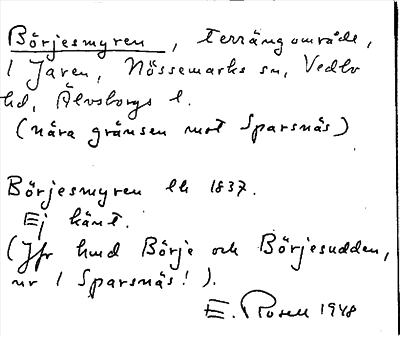 Börjesmyren, terrängområde,
i Jaren, Nössemarks sn, Vedbo
hd, Älvsborgs l.
(nära gränsen mot Sparsnäs)
Börjesmyren lk 1837.
Ej känt.
(Jfr Börje och Börjesudden,
nr 1 Sparsnäs!).
E. Rosell 1948